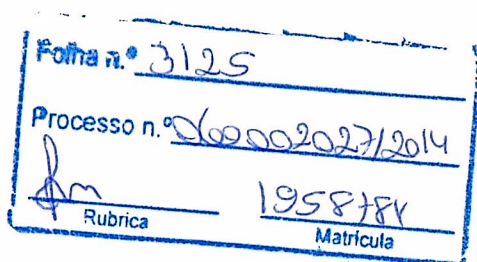 Folha n.º 3125
Processo n.º 060002027/2014
Rubrica
Matrícula